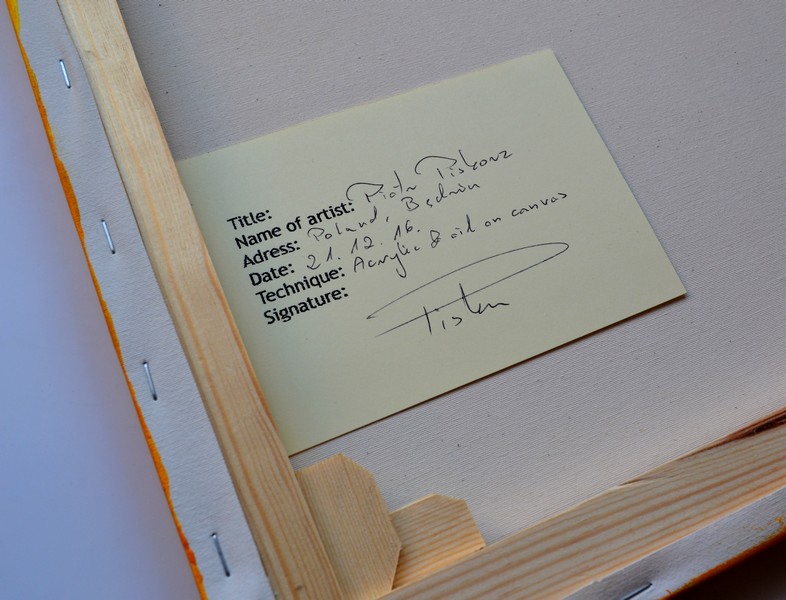 Title:
Name of artist: Piotr Piskorz
Adress: Poland, Będzin
Date: 21.12.16.
Technique: Acrylic & oil on canvas
Signature: